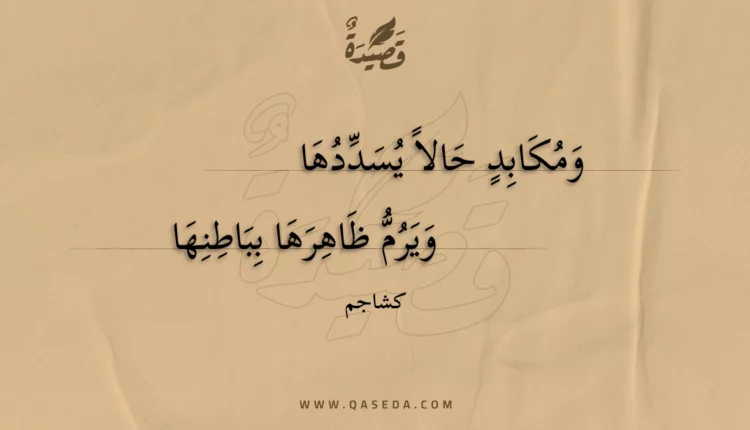 قَصِيدَةٌ
وَمُكَابِدٍ حَالاً يُسَدِّدُهَا
وَيَرُمُّ ظَاهِرَهَا بِبَاطِنِهَا
كشاجم
WWW.QASEDA.COM